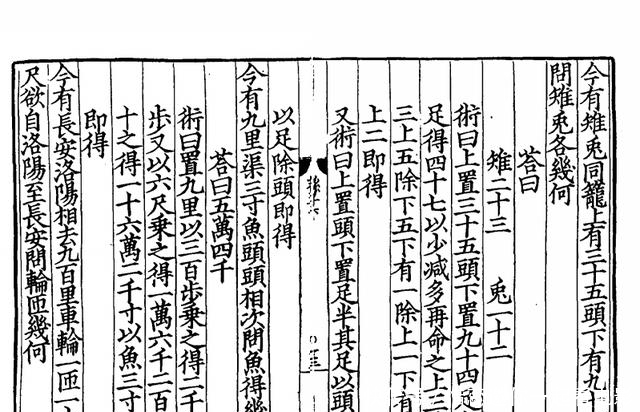 今有雉兎同籠上有三十五頭下有九十
問雉兎各幾何
荅曰
雉二十三 兎一十二
術曰上置三十五頭下置九十四足
足得四十七以少減多再命之上三
三上五除下五下有一除上一下有
上二即得
又術曰上置頭下置足半其足以頭
以足除頭即得
今有九里渠三寸魚頭頭相次問魚得幾
荅曰五萬四千
術曰置九里以三百步乘之得二千
步又以六尺乘之得一萬六千二百
十之得一十六萬二千寸以魚三寸
即得
今有長安洛陽相去九百里車輪一匝一
尺欲自洛陽至長安問輪匝幾何